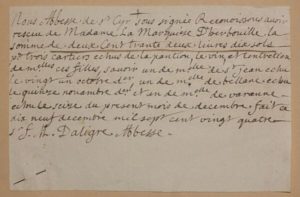 Nous Abbesse de St Cyr sous signée Reconnois avoir
resceu de Madame La Marquise D'herbouville La
somme de deux Cent trante deux livres dix sols
pr trois cartiers echus de la pantion, le vin et l'entretien
de melles ces filles, savoir un de melle de St jean echu
le vingt un octobre dr un de melle de echu
le quinze novambre dr et un de melle de varanne
echu le seize du present mois de decembre, fait ce
dix neuf decembre mil sept cent vingt quatre
Sr F. M. Daligre Abbesse.